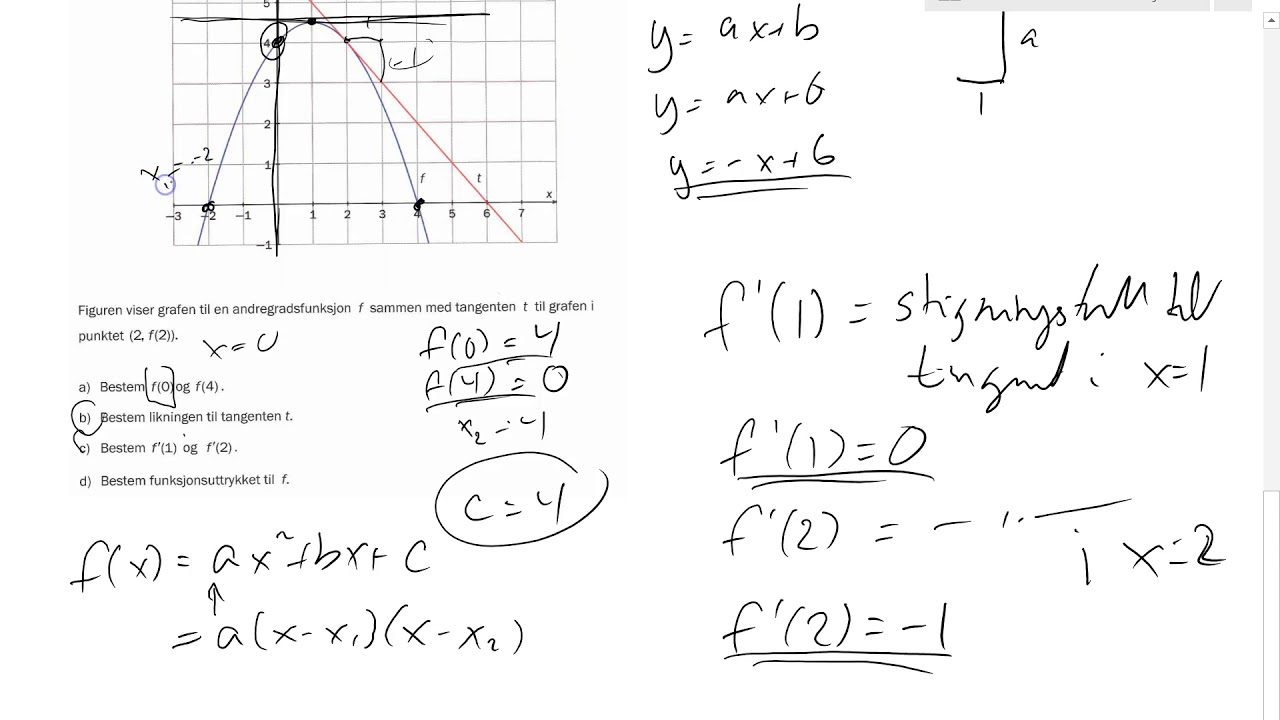 5
4
3
2
1
-1
-3 -2 -1 1 2 3 4 5 6 7
x
f t
-1
x₁ = -2
Figuren viser grafen til en andregradsfunksjon f sammen med tangenten t til grafen i
punktet (2, f(2)).
x = 0
a) Bestem f(0) og f(4).
b) Bestem likningen til tangenten t.
c) Bestem f'(1) og f'(2).
d) Bestem funksjonsuttrykket til f.
f(0) = 4
f(4) = 0
x₂ = 4
c = 4
f(x) = ax²+bx+c
= a(x-x₁)(x-x₂)
y = ax+b
y = ax+6
y = -x+6
a
1
f'(1) = stigningstall til
tangent i x=1
f'(1) = 0
f'(2) = - " -
i x=2
f'(2) = -1